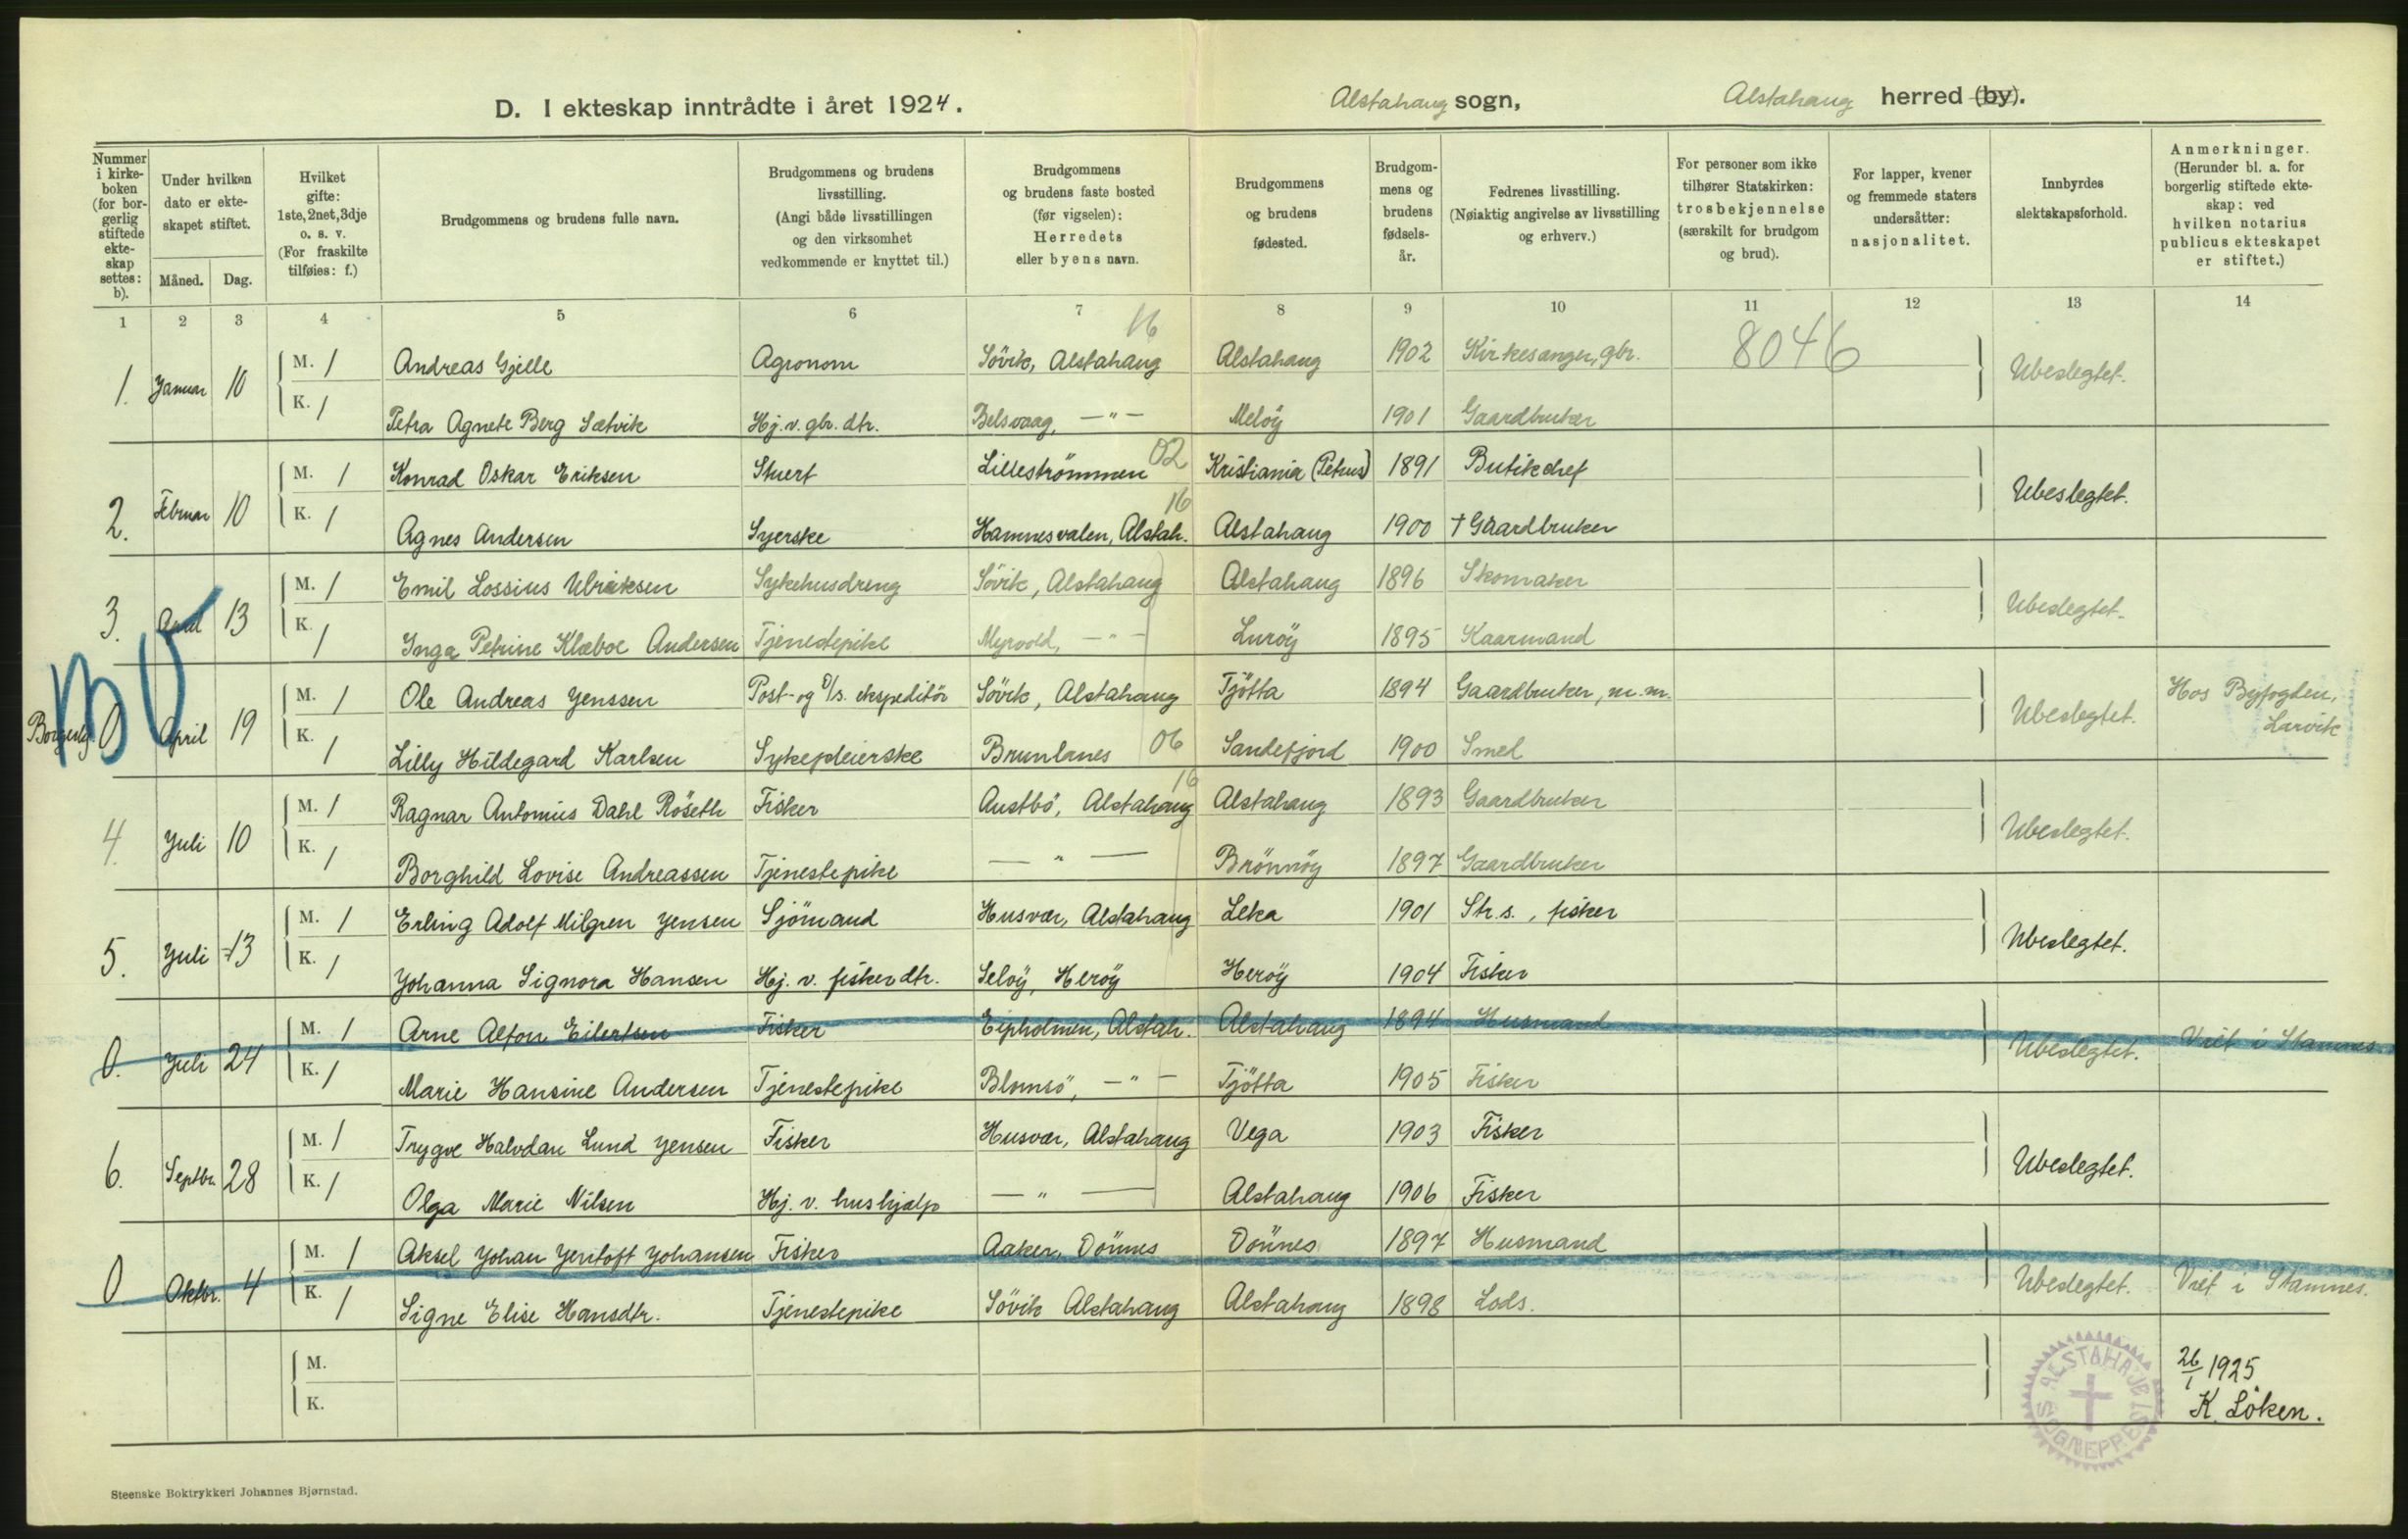 D. I ekteskap inntrådte i året 1924. Alstahaug sogn, Alstahaug herred (by).
Nummer i kirkeboken (for borgerlig stiftede ekteskap settes: b).
Under hvilken dato er ekteskapet stiftet.
Måned. Dag.
Hvilket gifte: 1ste, 2net, 3dje o. s. v. (For fraskilte tilføies: f.)
Brudgommens og brudens fulle navn.
Brudgommens og brudens livsstilling. (Angi både livsstillingen og den virksomhet vedkommende er knyttet til.)
Brudgommens og brudens faste bosted (før vigselen): Herredets eller byens navn.
Brudgommens og brudens fødested.
Brudgommens og brudens fødselsår.
Fedrenes livsstilling. (Nøiaktig angivelse av livsstilling og erhverv.)
For personer som ikke tilhører Statskirken: trosbekjennelse (særskilt for brudgom og brud).
For lapper, kvener og fremmede staters undersåtter: nasjonalitet.
Innbyrdes slektskapsforhold.
Anmerkninger. (Herunder bl. a. for borgerlig stiftede ekteskap: ved hvilken notarius publicus ekteskapet er stiftet.)
1 2 3 4 5 6 7 8 9 10 11 12 13 14
16 8046
1. Januar 10 M. 1 Andreas Gjelle Agronom Søvik, Alstahaug Alstahaug 1902 Kirkesanger, gbr. Ubeslegtet.
K. 1 Petra Agnete Berg Sætvik Hj. v. gbr. dtr. Belsvaag, —"— Meløy 1901 Gaardbruker
2. Februar 10 M. 1 Konrad Oskar Eriksen Stuert Lilleströmmen 02 Kristiania (Petrus) 1891 Butikchef Ubeslegtet.
K. 1 Agnes Andersen Syerske Hamnesvalen, Alstah. 16 Alstahaug 1900 † Gaardbruker
3. April 13 M. 1 Emil Lossius Ulriksen Sykehusdreng Søvik, Alstahaug Alstahaug 1896 Skomaker Ubeslegtet.
K. 1 Inga Petrine Klæboe Andersen Tjenestepike Myrvold, —"— Lurøy 1895 Kaarmand
BV
Borgerlig 0 April 19 M. 1 Ole Andreas Jenssen Post- og D/s. ekspeditör Søvik, Alstahaug Tjøtta 1894 Gaardbruker, m. m. Ubeslegtet. Hos Byfogden, Larvik
K. 1 Lilly Hildegard Karlsen Sykepleierske Brunlanes 06 Sandefjord 1900 Smed
4. Juli 10 M. 1 Ragnar Antonius Dahl Röseth Fisker Austbö, Alstahaug 16 Alstahaug 1893 Gaardbruker Ubeslegtet.
K. 1 Borghild Lovise Andreassen Tjenestepike —"— Brönnöy 1897 Gaardbruker
5. Juli 13 M. 1 Erling Adolf Milgren Jensen Sjömand Husvær, Alstahaug Leka 1901 Str. s., fisker Ubeslegtet.
K. 1 Johanna Signora Hansen Hj. v. fiskerdtr. Seløy, Herøy Herøy 1904 Fisker
0. Juli 24 M. 1 Arne Alfon Eilertsen Fisker Eipholmen, Alstah. Alstahaug 1894 Husmand Ubeslegtet. Viet i Stamnes
K. 1 Marie Hansine Andersen Tjenestepike Blomsö, —"— Tjøtta 1905 Fisker
6. Septbr. 28 M. 1 Trygve Halvdan Lund Jensen Fisker Husvær, Alstahaug Vega 1903 Fisker Ubeslegtet.
K. 1 Olga Marie Nilsen Hj. v. hushjælp —"— Alstahaug 1906 Fisker
0 Oktbr. 4 M. 1 Aksel Johan Jentoft Johansen Fisker Aaker, Dönnes Dönnes 1897 Husmand Ubeslegtet. Viet i Stamnes.
K. 1 Signe Elise Hansdtr. Tjenestepike Søvik Alstahaug Alstahaug 1898 Lods.
M.
K.
26/1 1925.
K. Löken.
ALSTAHAUG SOGNEPREST
Steenske Boktrykkeri Johannes Bjørnstad.